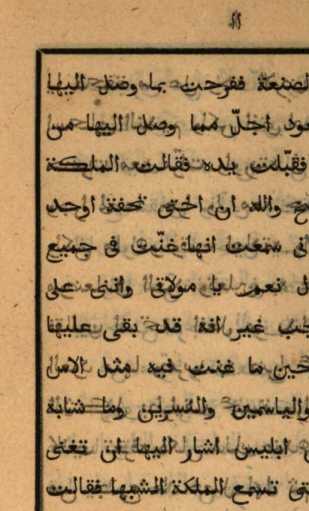 لصنعة ففرحت بما وصل اليها
عود اجلّ مما وصل اليها من
فقبّلت يده فقالت الملكة
والله ان اختى تحفة اوحد
نى سمعت انها غنّت فى جميع
نعم يا مولاتى واننى على
غير انه قد بقى عليها
حين ما غنت فيه مثل الاس
والياسمين والنسرين وما شابه
ابليس اشار اليها ان تغنى
تى تسمع الملكة الشبها فقالت